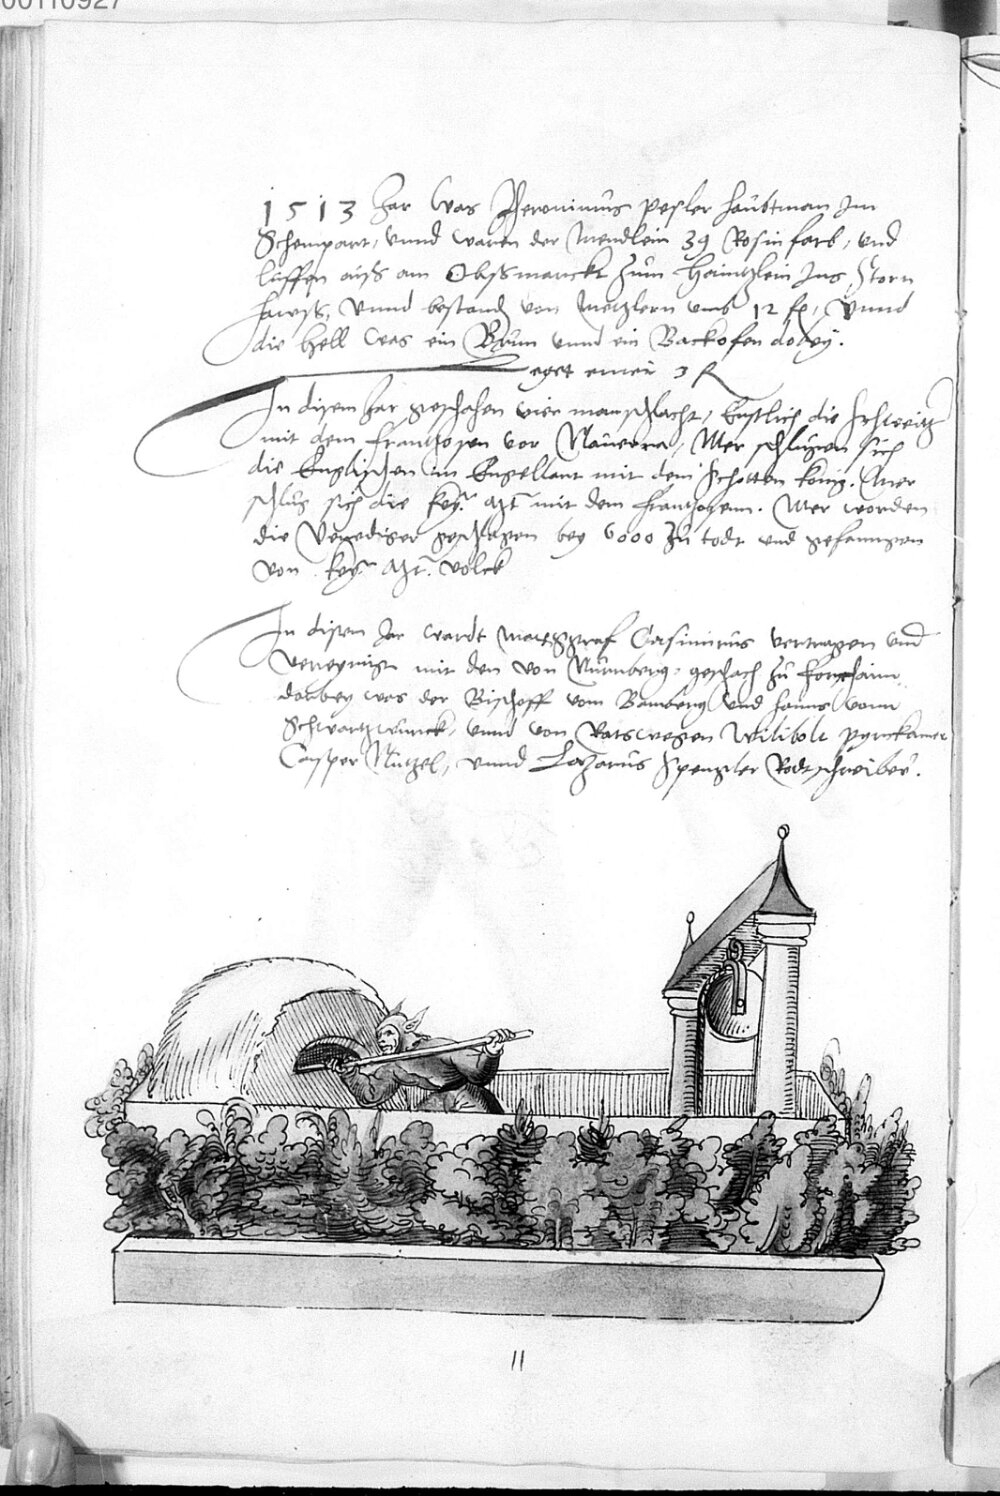 00110927
1513 Jar was Jheronimus pesler haubtman Im
Schempart, vnnd waren der mendlein 39 Rosin farb, vnd
luffen auß am Obssmarckt zum haintzlein Ins Storn
hauß, vnnd bestand von metzlern vmb 12 fl, vnnd
die hell was ein Brun vnnd ein Backofen dobey.
eget einer 3 R
In disem Jar geschahen vier manschlacht, Erstlich die Schweitz
mit dem frantzosen vor Nauerra, Mer schlugen sich
die Englischen in Engellant mit dem Schotten konig. Mer
schlug sich die key. Mt mit dem frantzosenn. Mer worden
die Venediger geschlagen bey 6000 zu todt vnd gefanngen
von key. Mt. volck
In disem Jar wardt marggraf Casimirus vertragen vnd
vereynigt mit den von Nurmberg, geschach zu forchaim
darbey was der Bischoff vom Bamberg vnd hanns vonn
Schwartzwurck, vnnd von Ratswegen Wilibolt pyrckamer
Casper Nutzel, vnnd Lazarus Spengler Rodtschreiber.
11